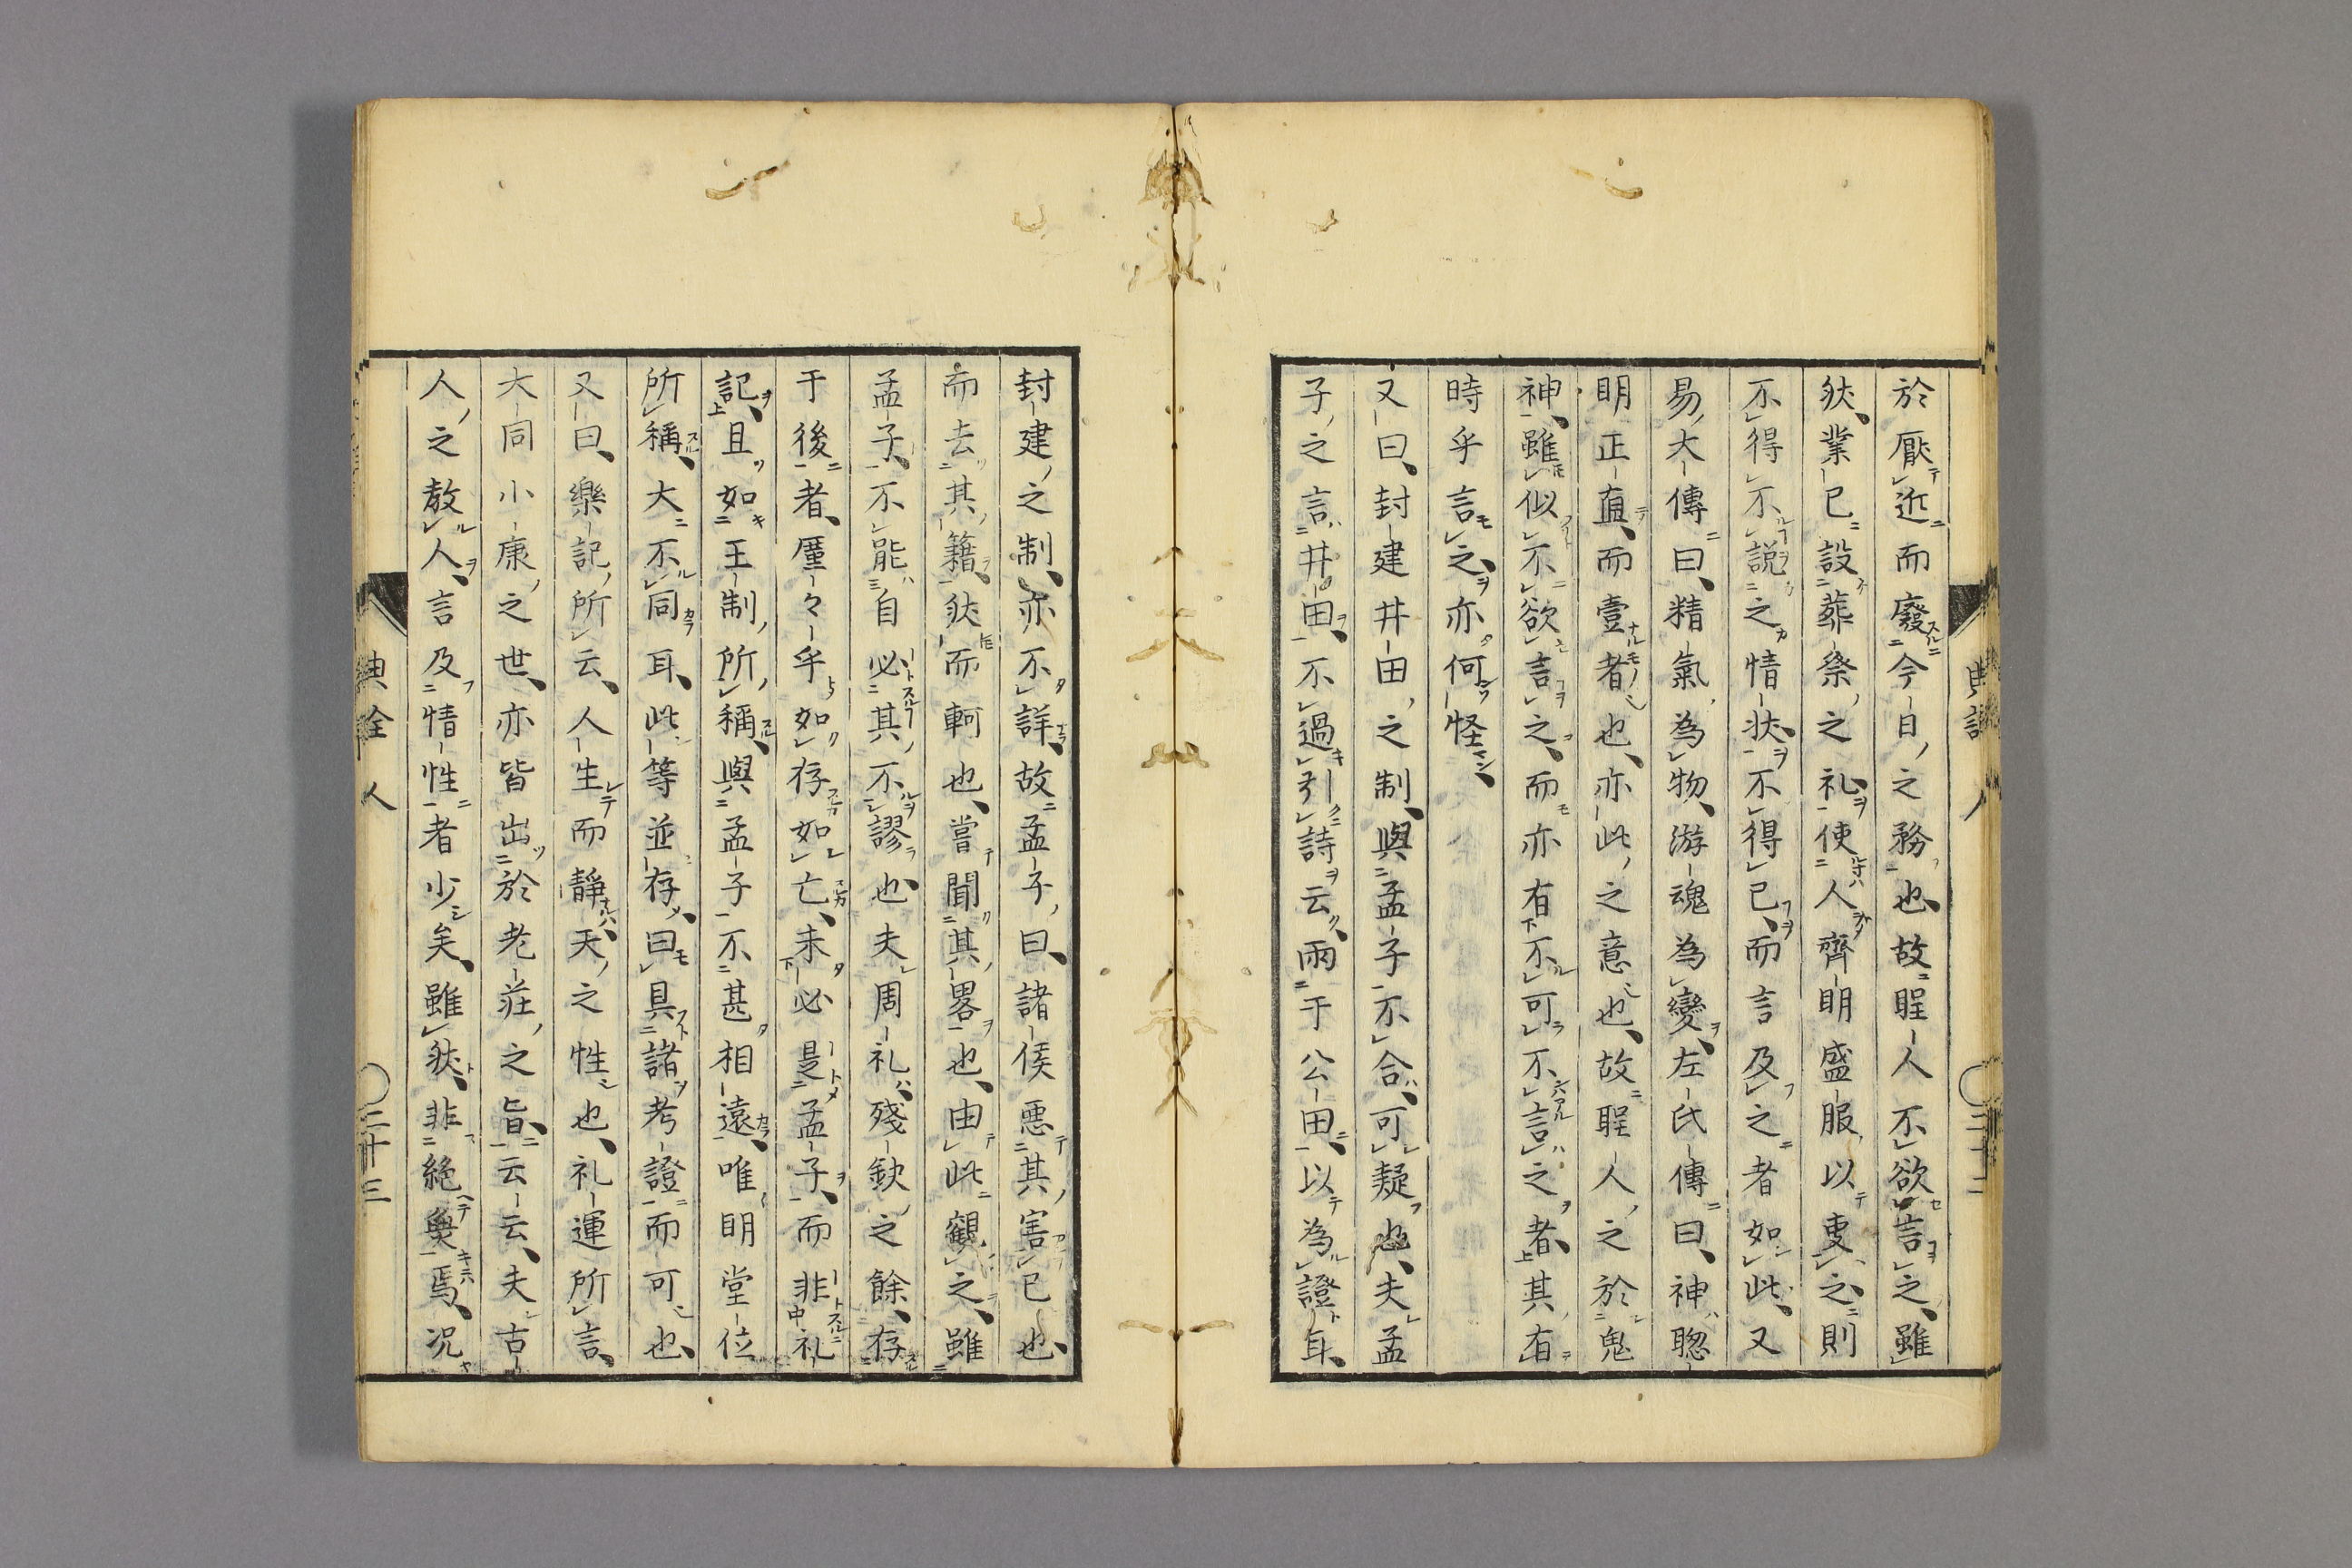 於厭近而廢今日之務也故聖人不欲言之雖
然業已設葬祭之礼使人齊明盛服以事之則
不得不說之情狀不得已而言及之者如此又
易大傳曰精氣為物游魂為變左氏傳曰神聰
明正直而壹者也亦此之意也故聖人之於鬼
神雖似不欲言之而亦有不可不言之者其有
時乎言之亦何怪
又曰封建井田之制與孟子不合可疑也夫孟
子之言井田不過引詩云雨于公田以為證耳
封建之制亦不詳故孟子曰諸侯惡其害已也
而去其籍然而軻也嘗聞其畧也由此觀之雖
孟子不能自必其不謬也夫周礼殘缺之餘存
于後者厪々乎如存如亡未必是孟子而非礼
記且如王制所稱與孟子不甚相遠唯明堂位
所稱大不同耳此等並存曰具諸考證而可也
又曰樂記所云人生而靜天之性也礼運所言
大同小康之世亦皆出於老莊之旨云云夫古
人之敎人言及情性者少矣雖然非絕無焉况
典詮 人
二十三